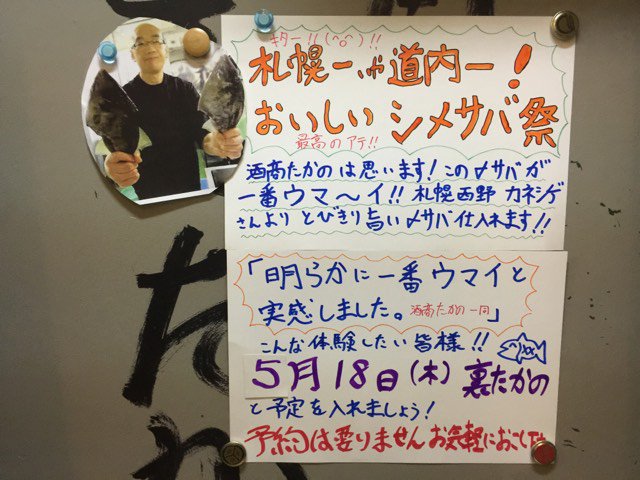 キター!! (^o^) !!
札幌一、いや道内一!
おいしい シメサバ祭
最高のアテ!!
酒高たかのは思います!この〆サバが
一番ウマ〜イ!! 札幌西野 カネシゲ
さんより とびきり旨い〆サバ仕入れます!!
「明らかに一番ウマイと
実感しました。酒高たかの一同」
こんな体験したい皆様!!
5月18日(木) 裏たかの
と予定を入れましょう!
予約は受りません お気軽におこし